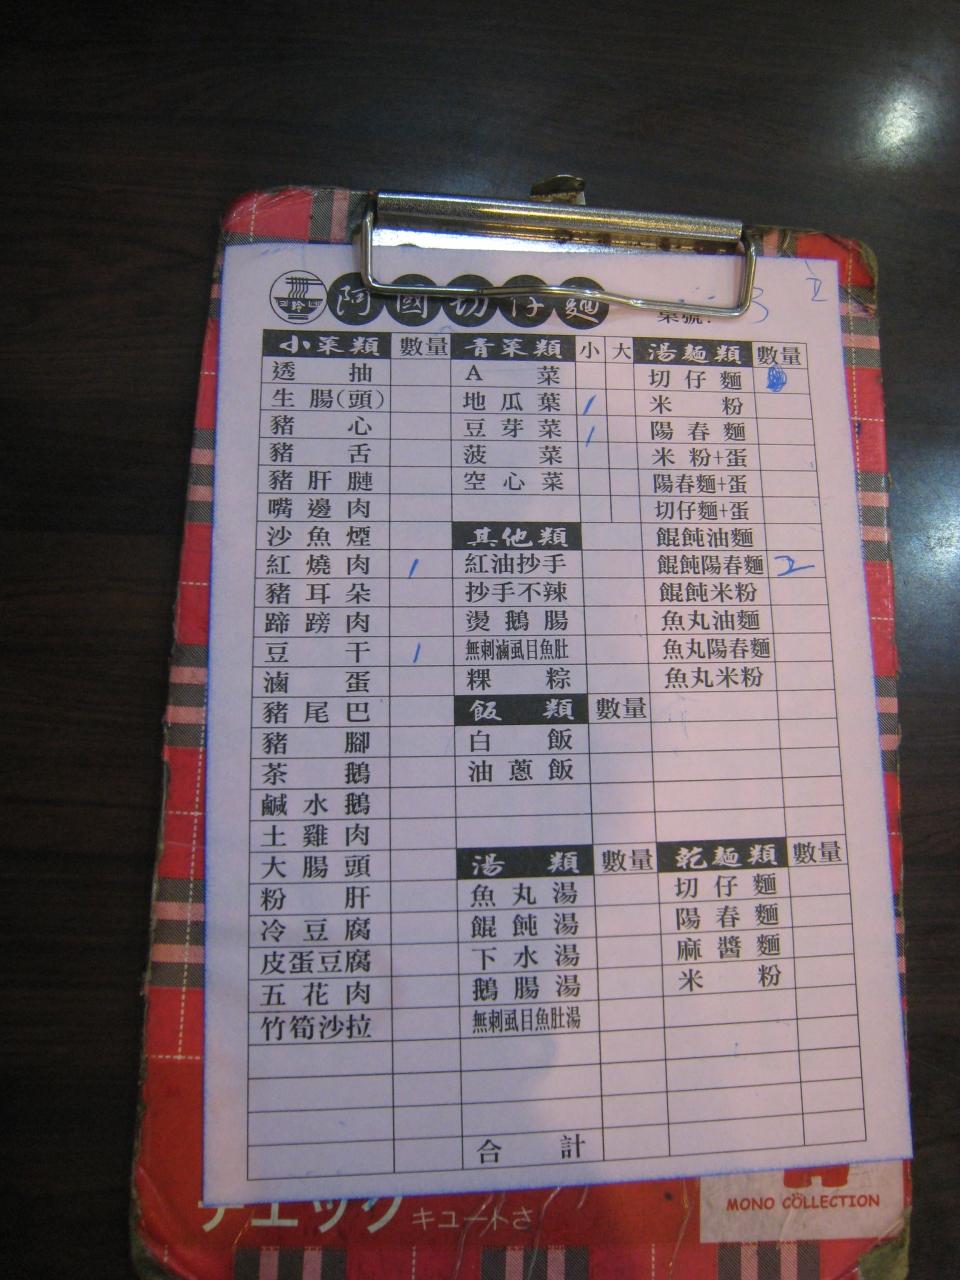 阿國切仔麵
桌號: 3
小菜類 數量 青菜類 小 大 湯麵類 數量
透抽 A菜 切仔麵
生腸(頭) 地瓜葉 / 米粉
豬心 豆芽菜 / 陽春麵
豬舌 菠菜 米粉+蛋
豬肝腱 空心菜 陽春麵+蛋
嘴邊肉 切仔麵+蛋
沙魚煙 其他類 餛飩油麵
紅燒肉 / 紅油抄手 餛飩陽春麵 2
豬耳朵 抄手不辣 餛飩米粉
蹄膀肉 燙鵝腸 魚丸油麵
豆干 / 無刺滷虱目魚肚 魚丸陽春麵
滷蛋 粿粽 魚丸米粉
豬尾巴 飯類 數量
豬腳 白飯
茶鵝 油蔥飯
鹹水鵝
土雞肉
大腸頭 湯類 數量 乾麵類 數量
粉肝 魚丸湯 切仔麵
冷豆腐 餛飩湯 陽春麵
皮蛋豆腐 下水湯 麻醬麵
五花肉 鵝腸湯 米粉
竹筍沙拉 無刺虱目魚肚湯
合計
チェック キュートさ
MONO COLLECTION